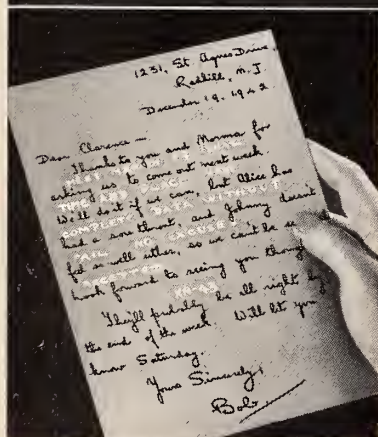 1231, St. Agnes Drive,
Redhill, N. J.
December 19, 1942
Dear Clarence —
Thanks to you and Norma for
asking us to come out next week.
TIME AND PLACE
We'll do it if we can, but Alice has
COMPLETE DATA WITHOUT
had a sore throat, and Johnny doesn't
FAIL NO EXCUSES
feel so well either, so we can't be
ACCEPTED
look forward to seeing you though
They'll probably be all right by
the end of the week. Will let you
know Saturday.
Yours Sincerely,
Bob